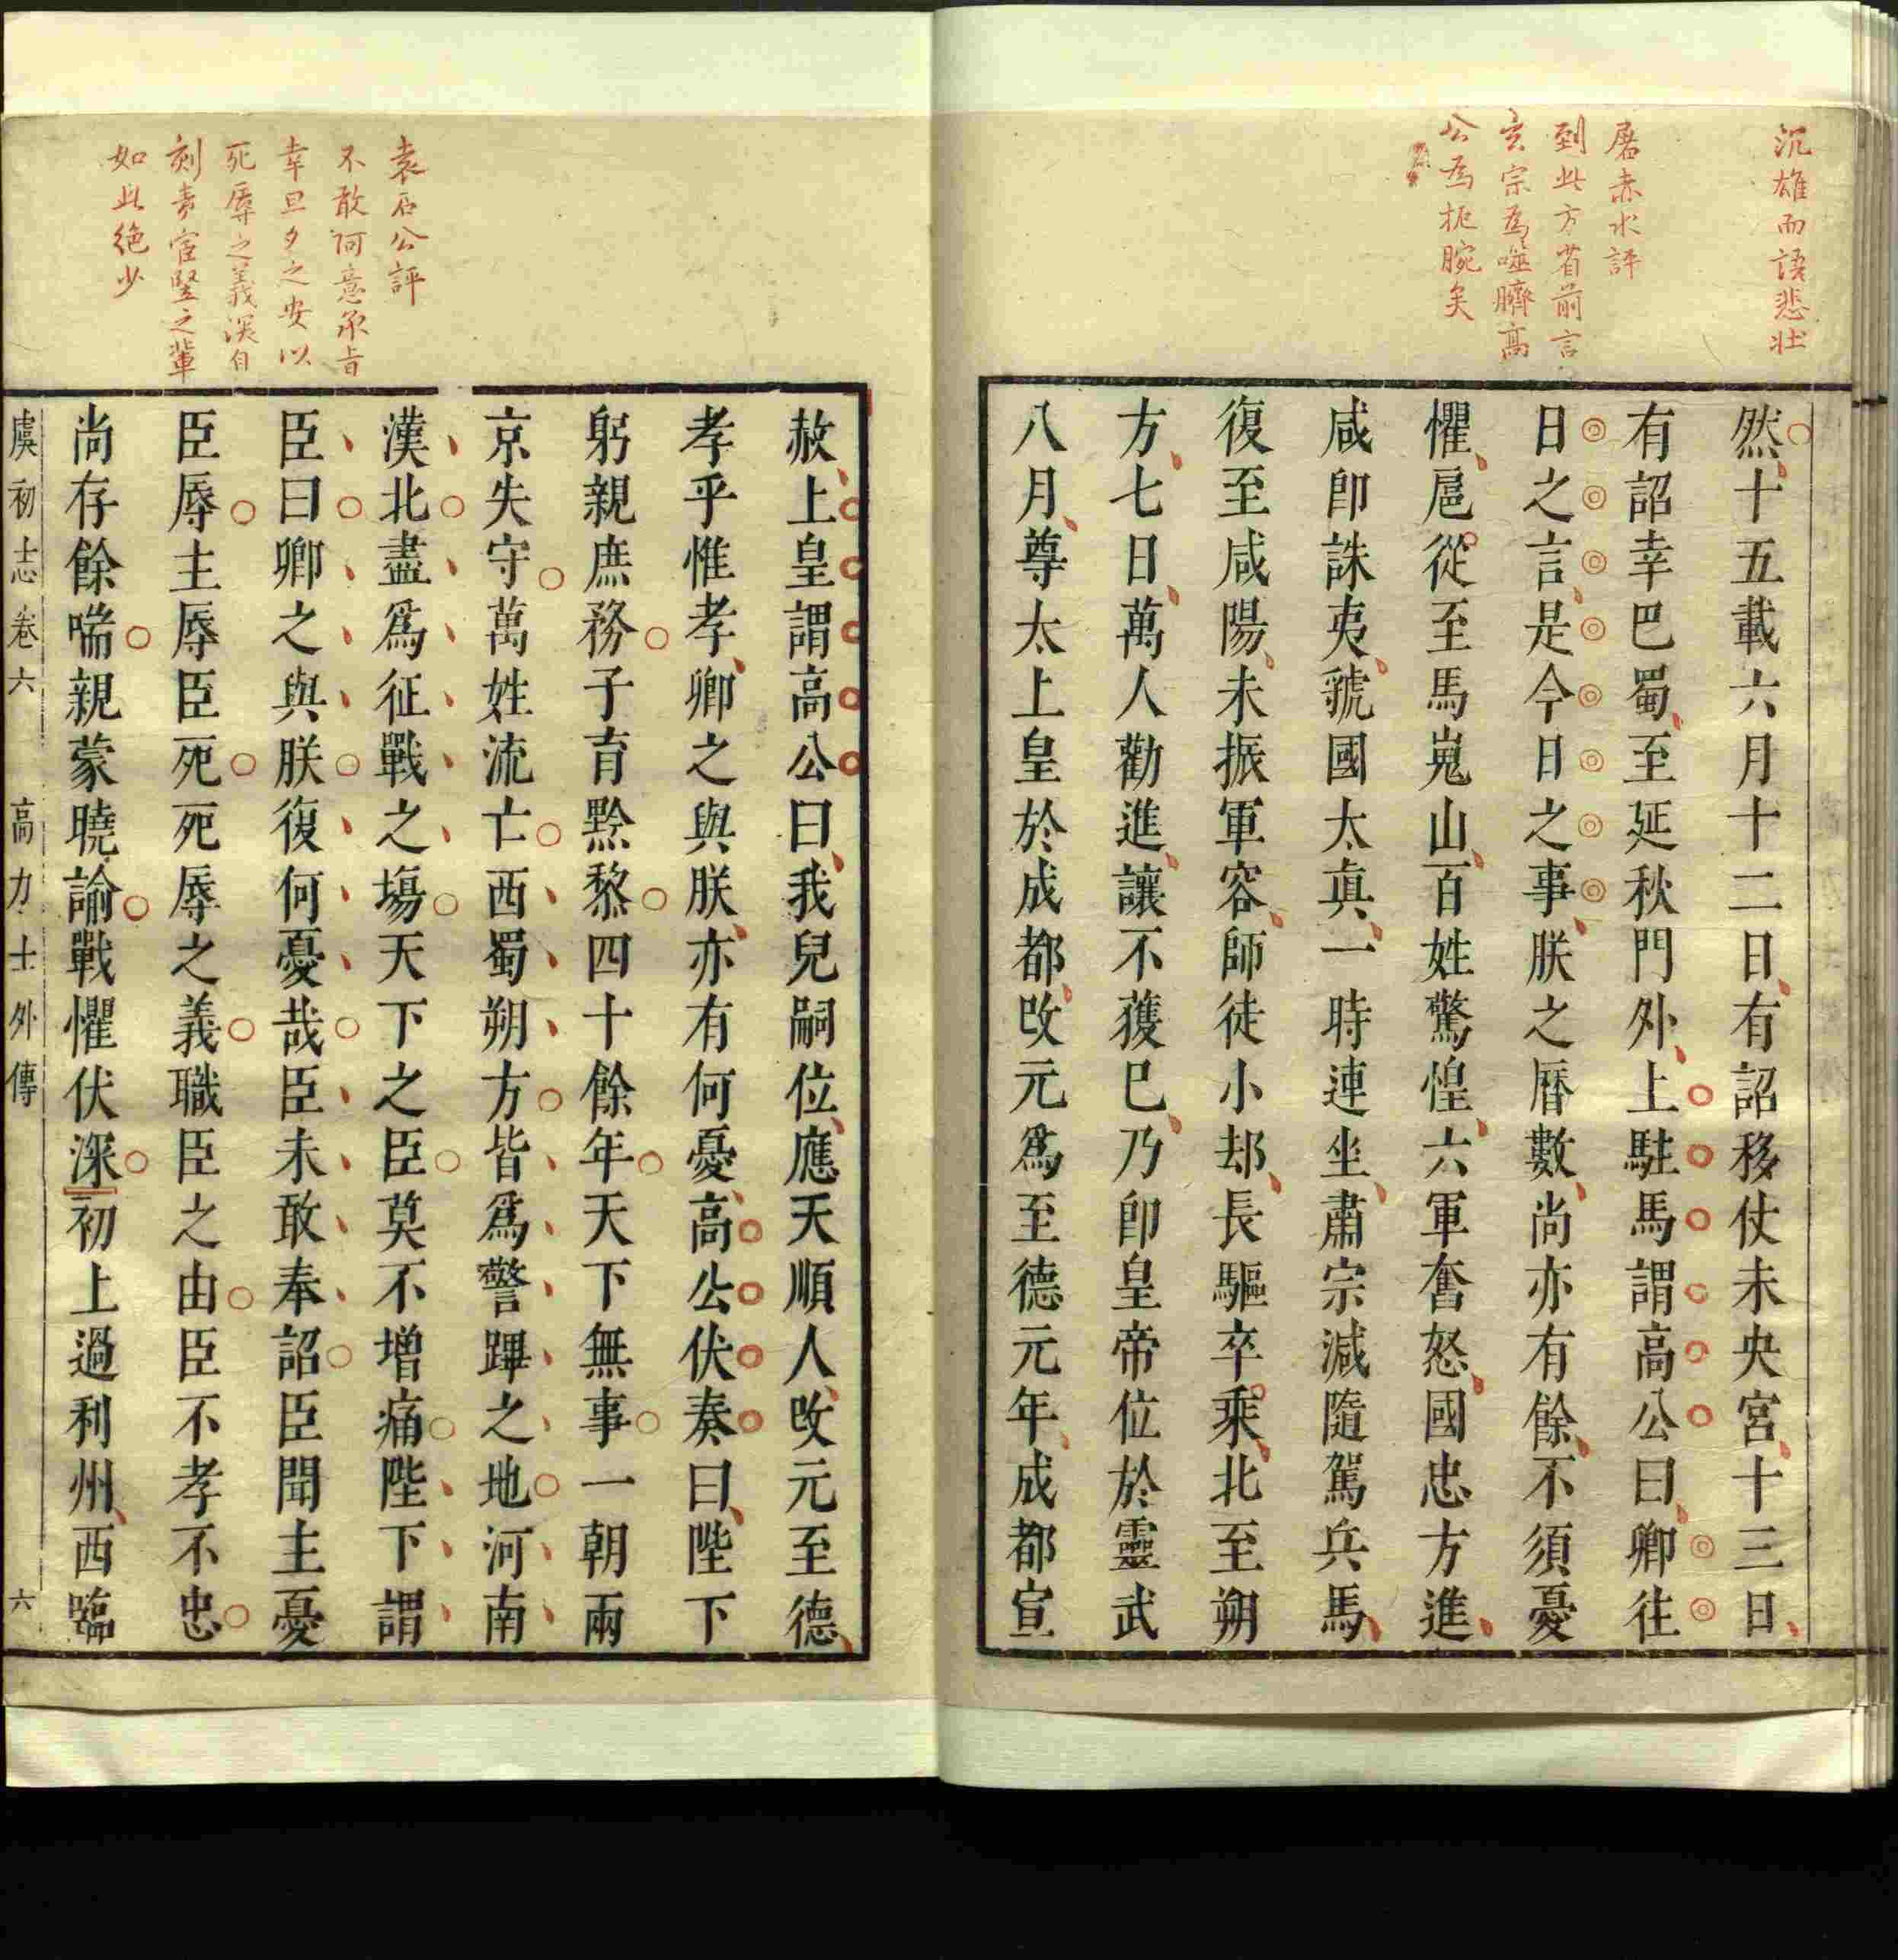 沉雄而語悲壯
屠赤水評
到此方省前言
玄宗為噬臍高
公為扼腕矣
然十五載六月十二日有詔移仗未央宮十三日
有詔幸巴蜀至延秋門外上駐馬謂高公曰卿往
日之言是今日之事朕之曆數尚亦有餘不須憂
懼扈從至馬嵬山百姓驚惶六軍奮怒國忠方進
咸卽誅夷虢國太眞一時連坐肅宗減隨駕兵馬
復至咸陽未振軍容師徒小却長驅卒乘北至朔
方七日萬人勸進讓不獲巳乃卽皇帝位於靈武
八月尊太上皇於成都改元爲至德元年成都宣
袁石公評
不敢阿意承旨
幸旦夕之安以
死辱之義深自
刻責宦豎之輩
如此絶少
赦上皇謂高公曰我兒嗣位應天順人改元至德
孝乎惟孝卿之與朕亦有何憂高公伏奏曰陛下
躬親庶務子育黔黎四十餘年天下無事一朝兩
京失守萬姓流亡西蜀朔方皆爲警蹕之地河南
漢北盡爲征戰之塲天下之臣莫不增痛陛下謂
臣曰卿之與朕復何憂哉臣未敢奉詔臣聞主憂
臣辱主辱臣死死辱之義職臣之由臣不孝不忠
尚存餘喘親蒙曉諭戰懼伏深初上過利州西臨
虞初志卷六 高力士外傳 六